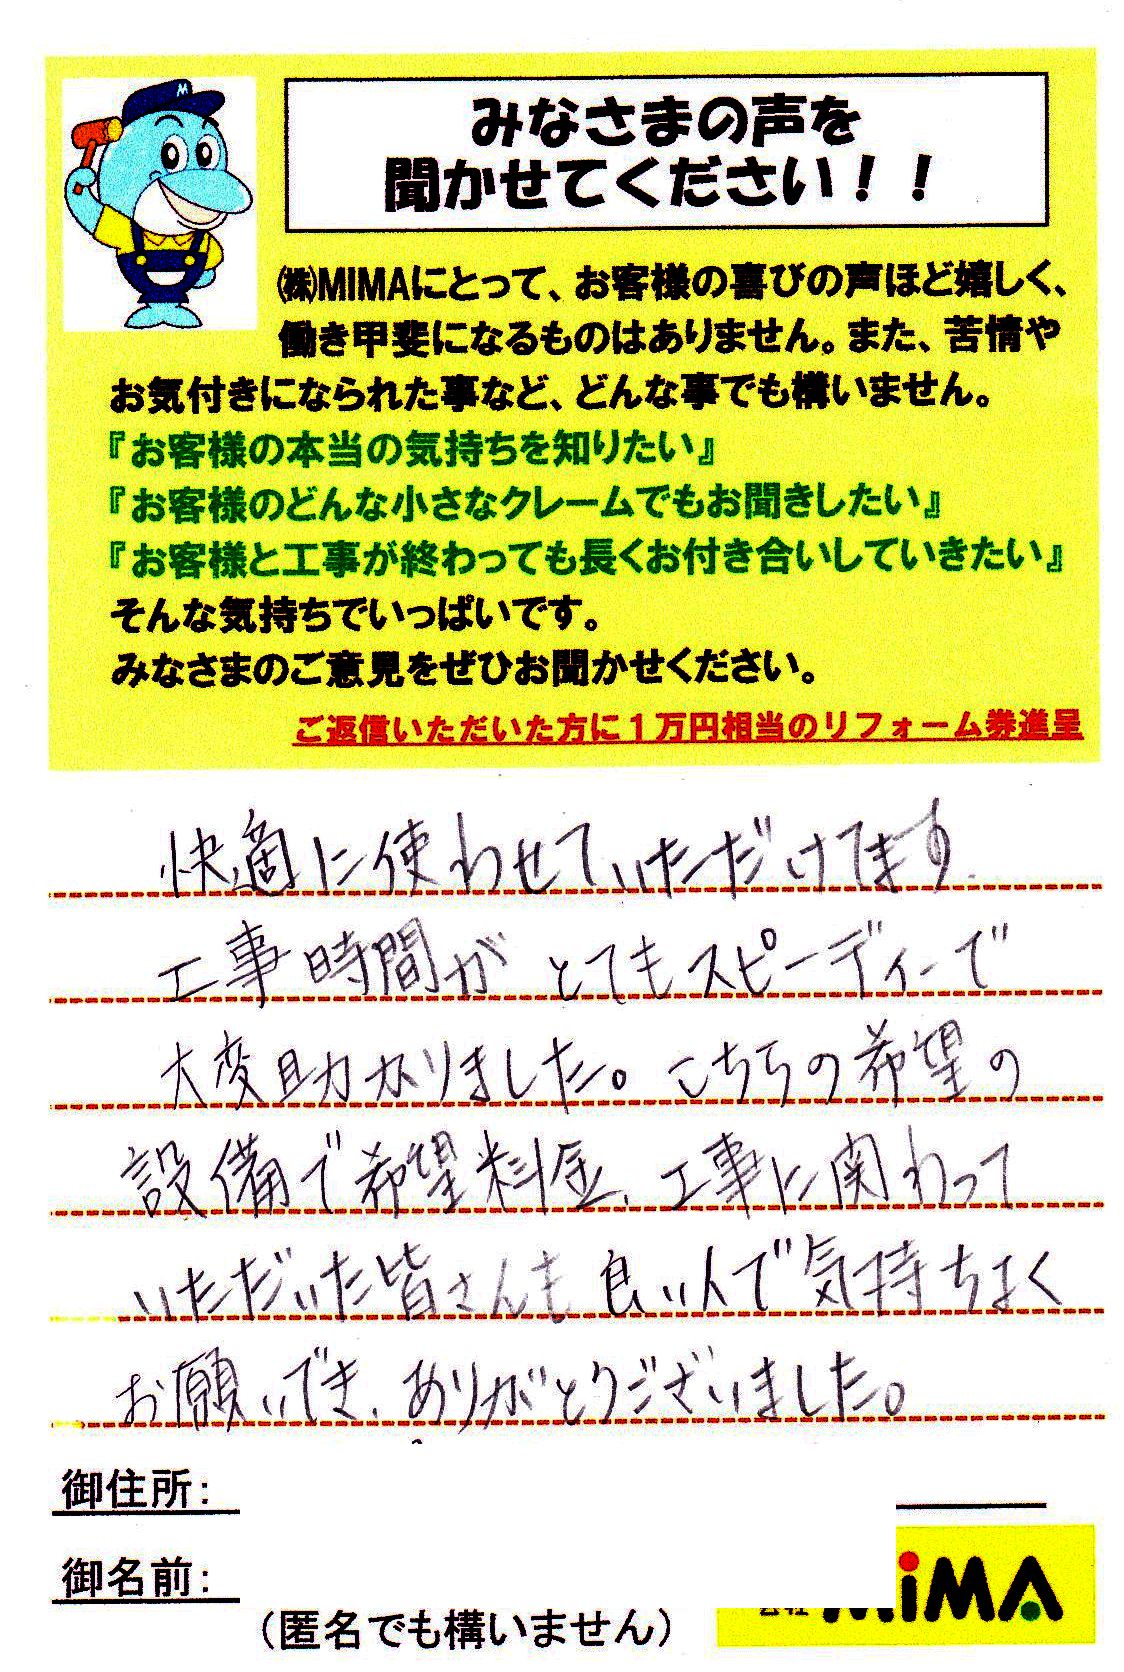 M
みなさまの声を
聞かせてください！！
㈱MIMAにとって、お客様の喜びの声ほど嬉しく、
働き甲斐になるものはありません。また、苦情や
お気付きになられた事など、どんな事でも構いません。
『お客様の本当の気持ちを知りたい』
『お客様のどんな小さなクレームでもお聞きしたい』
『お客様と工事が終わっても長くお付き合いしていきたい』
そんな気持ちでいっぱいです。
みなさまのご意見をぜひお聞かせください。
ご返信いただいた方に１万円相当のリフォーム券進呈
快適に使わせていただけてます。
工事時間がとてもスピーディーで
大変助かりました。こちらの希望の
設備で希望料金、工事に関わって
いただいた皆さんも良い人で気持ちよく
お願いでき、ありがとうございました。
御住所：
御名前：
（匿名でも構いません）
MiMA